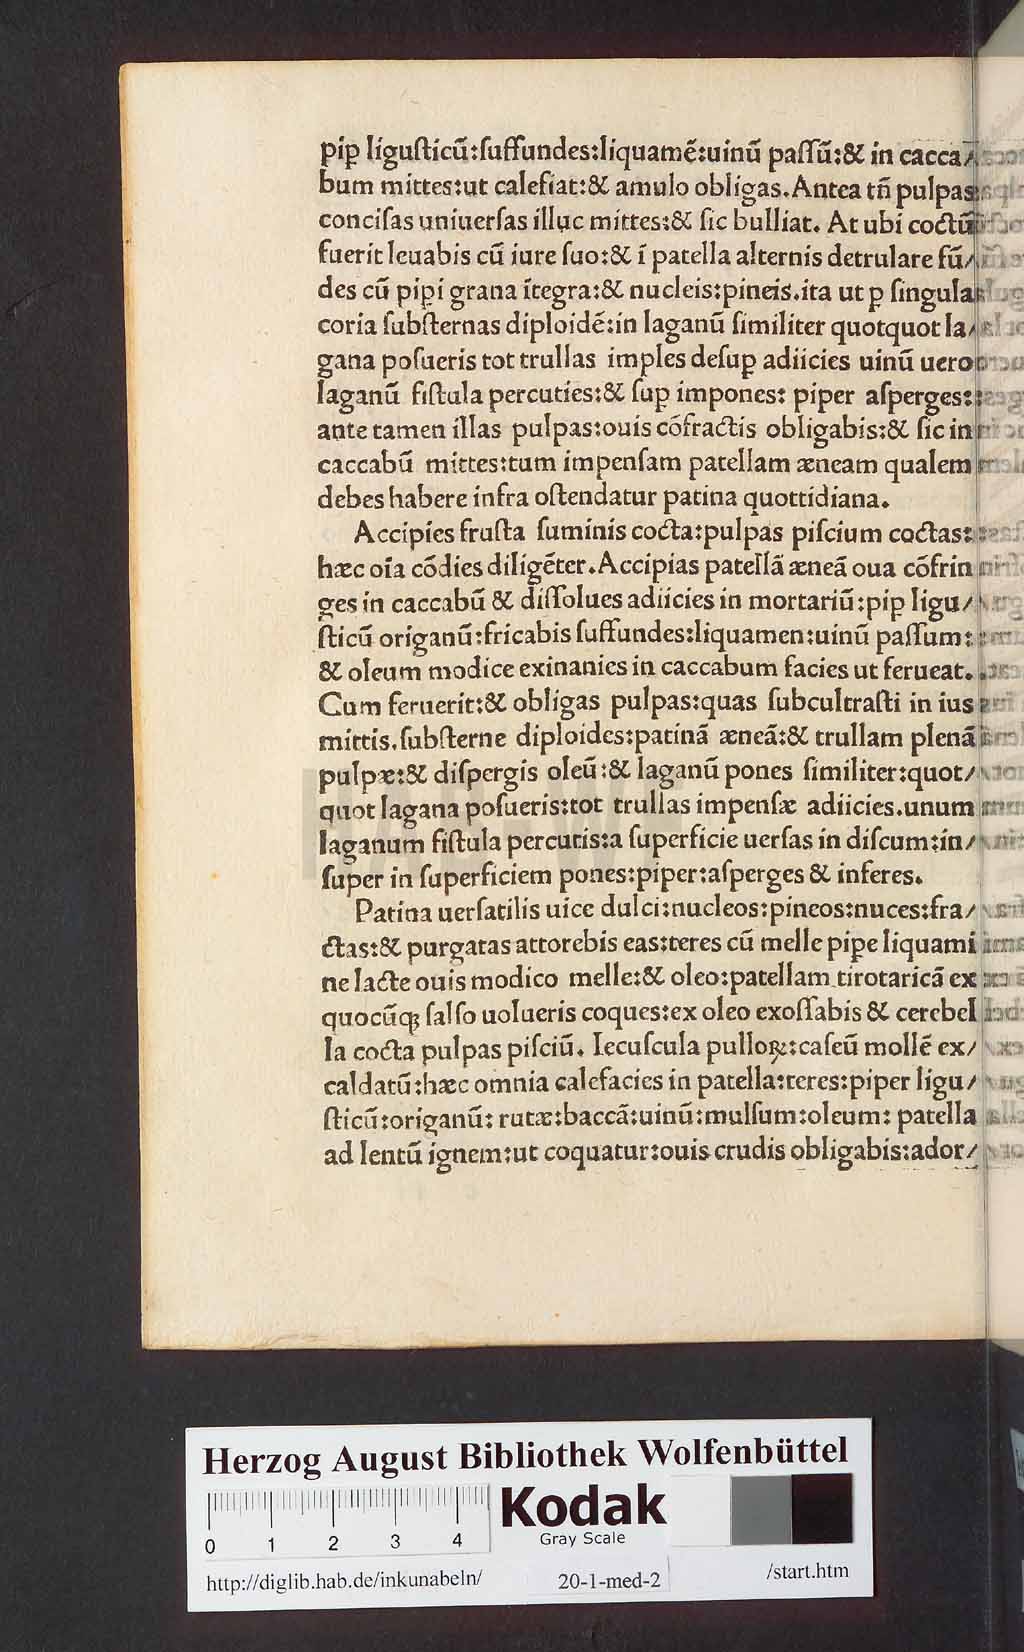 pip̲ liguſticū:ſuffundes:liquamē:uinū paſſū:& in cacca/
bum mittes:ut calefiat:& amulo obligas.Antea tn̄ pulpas
conciſas uniuerſas illuc mittes:& ſic bulliat. At ubi coctū
fuerit leuabis cū iure ſuo:& ī patella alternis detrulare fū/
des cū pip̲i grana ītegra:& nucleis:pineis.ita ut p̲ ſingula
coria ſubſternas diploidē:in laganū ſimiliter quotquot la/
gana poſueris tot trullas imples deſup̲ adiicies uinū uero
laganū fiſtula percuties:& ſup̲ impones: piper aſperges:
ante tamen illas pulpas:ouis cōfractis obligabis:& ſic in
caccabū mittes:tum impenſam patellam æneam qualem
debes habere infra oſtendatur patina quottidiana.
Accipies fruſta ſuminis cocta:pulpas piſcium coctas:
hæc oīa cōdies diligēter.Accipias patellā æneā oua cōfrin
ges in caccabū & diſſolues adiicies in mortariū:pip̲ ligu/
ſticū origanū:fricabis ſuffundes:liquamen:uinū paſſum:
& oleum modice exinanies in caccabum facies ut ferueat.
Cum feruerit:& obligas pulpas:quas ſubcultraſti in ius
mittis.ſubſterne diploides:patinā æneā:& trullam plenā
pulpæ:& diſpergis oleū:& laganū pones ſimiliter:quot/
quot lagana poſueris:tot trullas impenſæ adiicies.unum
laganum fiſtula percutis:a ſuperficie uerſas in diſcum:in/
ſuper in ſuperficiem pones:piper:aſperges & inferes.
Patina uerſatilis uice dulci:nucleos:pineos:nuces:fra/
ctas:& purgatas attorebis eas:teres cū melle pip̲e liquami
ne lacte ouis modico melle:& oleo:patellam tirotaricā ex
quocūqꝫ ſalſo uolueris coques:ex oleo exoſſabis & cerebel
la cocta pulpas piſciū. Iecuſcula pulloꝝ:caſeū mollē ex/
caldatū:hæc omnia calefacies in patella:teres:piper ligu/
ſticū:origanū: rutæ:baccā:uinū:mulſum:oleum: patella
ad lentū ignem:ut coquatur:ouis crudis obligabis:ador/
Herzog August Bibliothek Wolfenbüttel
0 1 2 3 4
Kodak
Gray Scale
http://diglib.hab.de/inkunabeln/ 20-1-med-2 /start.htm